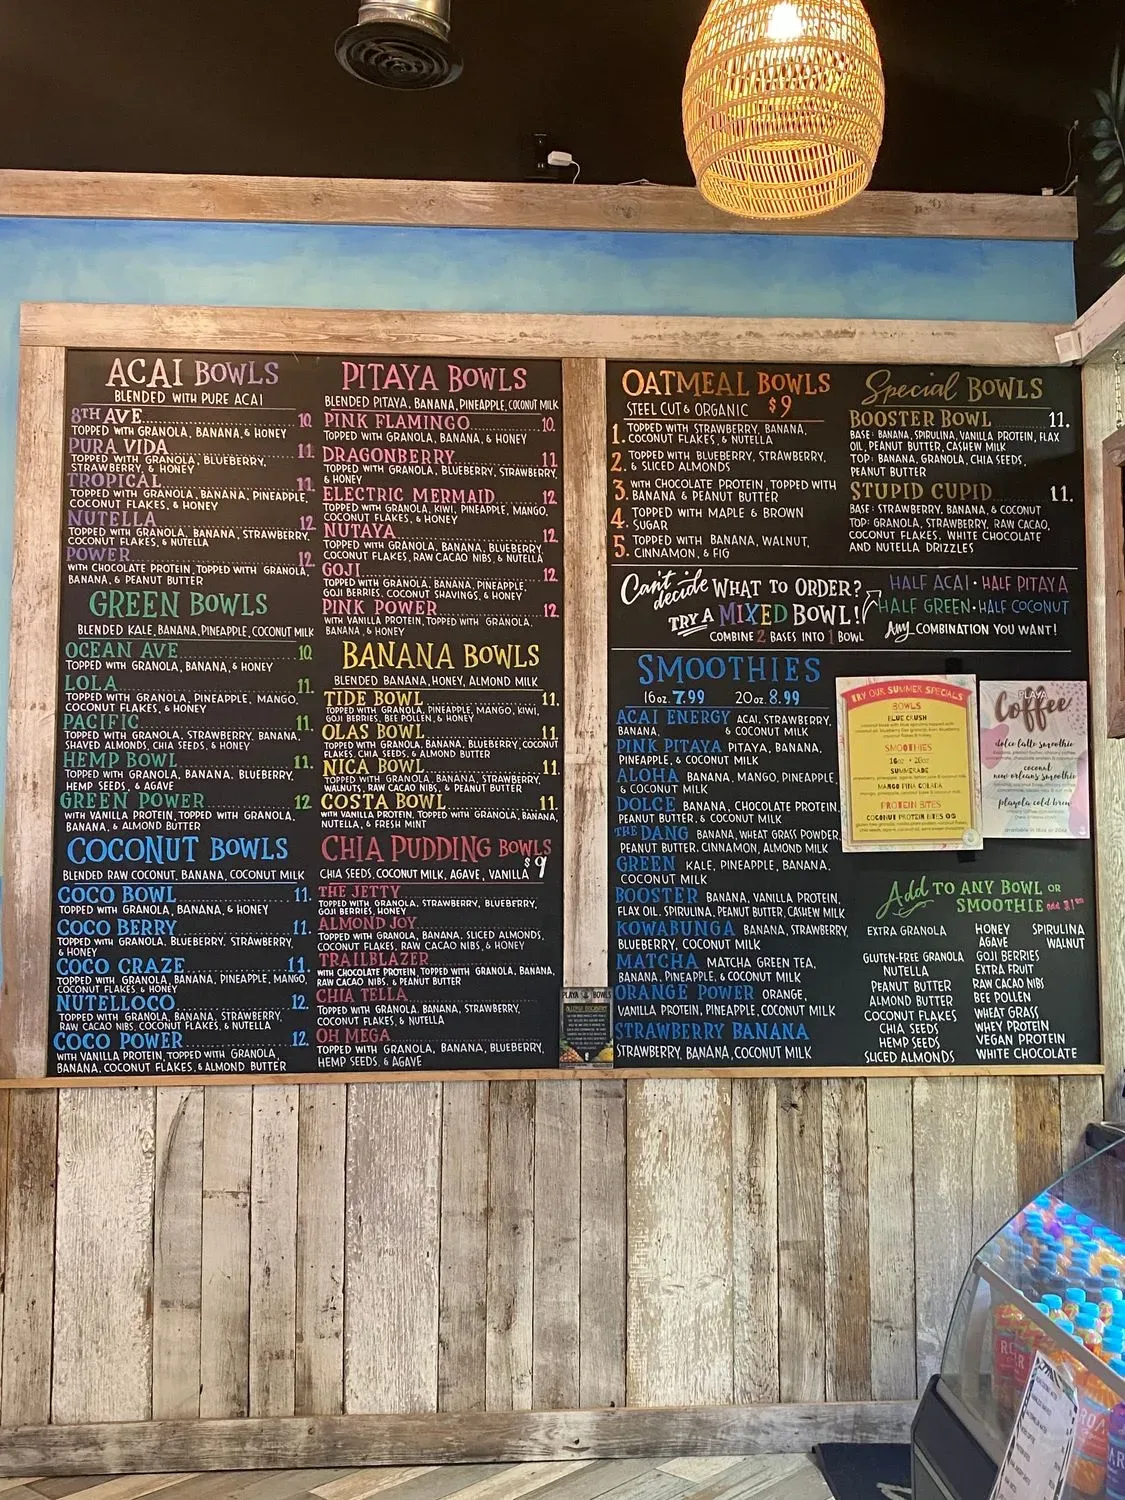 ACAI BOWLS
BLENDED WITH PURE ACAI
8TH AVE 10.
TOPPED WITH GRANOLA, BANANA, & HONEY
PURA VIDA 11.
TOPPED WITH GRANOLA, BLUEBERRY,
STRAWBERRY, & HONEY
TROPICAL 11.
TOPPED WITH GRANOLA, BANANA, PINEAPPLE,
COCONUT FLAKES, & HONEY
NUTELLA 12.
TOPPED WITH GRANOLA, BANANA, STRAWBERRY,
COCONUT FLAKES, & NUTELLA
POWER 12.
WITH CHOCOLATE PROTEIN, TOPPED WITH GRANOLA,
BANANA, & PEANUT BUTTER
GREEN BOWLS
BLENDED KALE, BANANA, PINEAPPLE, COCONUT MILK
OCEAN AVE 10.
TOPPED WITH GRANOLA, BANANA, & HONEY
LOLA 11.
TOPPED WITH GRANOLA, PINEAPPLE, MANGO,
COCONUT FLAKES, & HONEY
PACIFIC 11.
TOPPED WITH GRANOLA, STRAWBERRY, BANANA,
SHAVED ALMONDS, CHIA SEEDS, & HONEY
HEMP BOWL 11.
TOPPED WITH GRANOLA, BANANA, BLUEBERRY,
HEMP SEEDS, & AGAVE
GREEN POWER 12.
WITH VANILLA PROTEIN, TOPPED WITH GRANOLA,
BANANA, & ALMOND BUTTER
COCONUT BOWLS
BLENDED RAW COCONUT, BANANA, COCONUT MILK
COCO BOWL 11.
TOPPED WITH GRANOLA, BANANA, & HONEY
COCO BERRY 11.
TOPPED WITH GRANOLA, BLUEBERRY, STRAWBERRY,
& HONEY
COCO CRAZE 11.
TOPPED WITH GRANOLA, BANANA, PINEAPPLE, MANGO,
COCONUT FLAKES, & HONEY
NUTELLOCO 12.
TOPPED WITH GRANOLA, BANANA, STRAWBERRY,
RAW CACAO NIBS, COCONUT FLAKES, & NUTELLA
COCO POWER 12.
WITH VANILLA PROTEIN, TOPPED WITH GRANOLA,
BANANA, COCONUT FLAKES, & ALMOND BUTTER
PITAYA BOWLS
BLENDED PITAYA, BANANA, PINEAPPLE, COCONUT MILK
PINK FLAMINGO 10.
TOPPED WITH GRANOLA, BANANA, & HONEY
DRAGONBERRY 11.
TOPPED WITH GRANOLA, BLUEBERRY, STRAWBERRY,
& HONEY
ELECTRIC MERMAID 12.
TOPPED WITH GRANOLA, KIWI, PINEAPPLE, MANGO,
COCONUT FLAKES, & HONEY
NUTAYA 12.
TOPPED WITH GRANOLA, BANANA, BLUEBERRY,
COCONUT FLAKES, RAW CACAO NIBS, & NUTELLA
GOJI 12.
TOPPED WITH GRANOLA, BANANA, PINEAPPLE,
GOJI BERRIES, COCONUT SHAVINGS, & HONEY
PINK POWER 12.
WITH VANILLA PROTEIN, TOPPED WITH GRANOLA,
BANANA, & HONEY
BANANA BOWLS
BLENDED BANANA, HONEY, ALMOND MILK
TIDE BOWL 11.
TOPPED WITH GRANOLA, PINEAPPLE, MANGO, KIWI,
GOJI BERRIES, BEE POLLEN, & HONEY
OLAS BOWL 11.
TOPPED WITH GRANOLA, BANANA, BLUEBERRY, COCONUT
FLAKES, CHIA SEEDS, & ALMOND BUTTER
NICA BOWL 11.
TOPPED WITH GRANOLA, BANANA, STRAWBERRY,
WALNUTS, RAW CACAO NIBS, & PEANUT BUTTER
COSTA BOWL 11.
WITH VANILLA PROTEIN, TOPPED WITH GRANOLA, BANANA,
NUTELLA, & FRESH MINT
CHIA PUDDING BOWLS
CHIA SEEDS, COCONUT MILK, AGAVE, VANILLA $9
THE JETTY
TOPPED WITH GRANOLA, STRAWBERRY, BLUEBERRY,
GOJI BERRIES, HONEY
ALMOND JOY
TOPPED WITH GRANOLA, BANANA, SLICED ALMONDS,
COCONUT FLAKES, RAW CACAO NIBS, & HONEY
TRAILBLAZER
WITH CHOCOLATE PROTEIN, TOPPED WITH GRANOLA, BANANA,
RAW CACAO NIBS, & PEANUT BUTTER
CHIA TELLA
TOPPED WITH GRANOLA, BANANA, STRAWBERRY,
COCONUT FLAKES, & NUTELLA
OH MEGA
TOPPED WITH GRANOLA, BANANA, BLUEBERRY,
HEMP SEEDS, & AGAVE
PLAYA BOWLS
OATMEAL BOWLS
STEEL CUT & ORGANIC $9
1. TOPPED WITH STRAWBERRY, BANANA,
COCONUT FLAKES, & NUTELLA
2. TOPPED WITH BLUEBERRY, STRAWBERRY,
& SLICED ALMONDS
3. WITH CHOCOLATE PROTEIN, TOPPED WITH
BANANA & PEANUT BUTTER
4. TOPPED WITH MAPLE & BROWN
SUGAR
5. TOPPED WITH BANANA, WALNUT,
CINNAMON, & FIG
Special BOWLS
BOOSTER BOWL 11.
BASE: BANANA, SPIRULINA, VANILLA PROTEIN, FLAX
OIL, PEANUT BUTTER, CASHEW MILK
TOP: BANANA, GRANOLA, CHIA SEEDS,
PEANUT BUTTER
STUPID CUPID 11.
BASE: STRAWBERRY, BANANA, & COCONUT
TOP: GRANOLA, STRAWBERRY, RAW CACAO,
COCONUT FLAKES, WHITE CHOCOLATE
AND NUTELLA DRIZZLES
Can't decide WHAT TO ORDER?
TRY A MIXED BOWL!
COMBINE 2 BASES INTO 1 BOWL
HALF ACAI • HALF PITAYA
HALF GREEN • HALF COCONUT
Any COMBINATION YOU WANT!
SMOOTHIES
16oz. 7.99 20oz. 8.99
ACAI ENERGY ACAI, STRAWBERRY,
BANANA, & COCONUT MILK
PINK PITAYA PITAYA, BANANA,
PINEAPPLE, & COCONUT MILK
ALOHA BANANA, MANGO, PINEAPPLE,
& COCONUT MILK
DOLCE BANANA, CHOCOLATE PROTEIN,
PEANUT BUTTER, & COCONUT MILK
THE DANG BANANA, WHEAT GRASS POWDER,
PEANUT BUTTER, CINNAMON, ALMOND MILK
GREEN KALE, PINEAPPLE, BANANA,
COCONUT MILK
BOOSTER BANANA, VANILLA PROTEIN,
FLAX OIL, SPIRULINA, PEANUT BUTTER, CASHEW MILK
KOWABUNGA BANANA, STRAWBERRY,
BLUEBERRY, COCONUT MILK
MATCHA MATCHA GREEN TEA,
BANANA, PINEAPPLE, & COCONUT MILK
ORANGE POWER ORANGE,
VANILLA PROTEIN, PINEAPPLE, COCONUT MILK
STRAWBERRY BANANA
STRAWBERRY, BANANA, COCONUT MILK
TRY OUR SUMMER SPECIALS
BOWLS
BLUE CRUSH
SMOOTHIES
16oz • 20oz
SUMMERADE
MANGO PINA COLADA
PROTEIN BITES
COCONUT PROTEIN BITES OG
PLAYA
Coffee
dolce latte smoothie
coconut
new orleans smoothie
playola cold brew
available in 16oz or 20oz
Add TO ANY BOWL OR
SMOOTHIE
EXTRA GRANOLA
GLUTEN-FREE GRANOLA
NUTELLA
PEANUT BUTTER
ALMOND BUTTER
COCONUT FLAKES
CHIA SEEDS
HEMP SEEDS
SLICED ALMONDS
HONEY
AGAVE
GOJI BERRIES
EXTRA FRUIT
RAW CACAO NIBS
BEE POLLEN
WHEAT GRASS
WHEY PROTEIN
VEGAN PROTEIN
WHITE CHOCOLATE
SPIRULINA
WALNUT